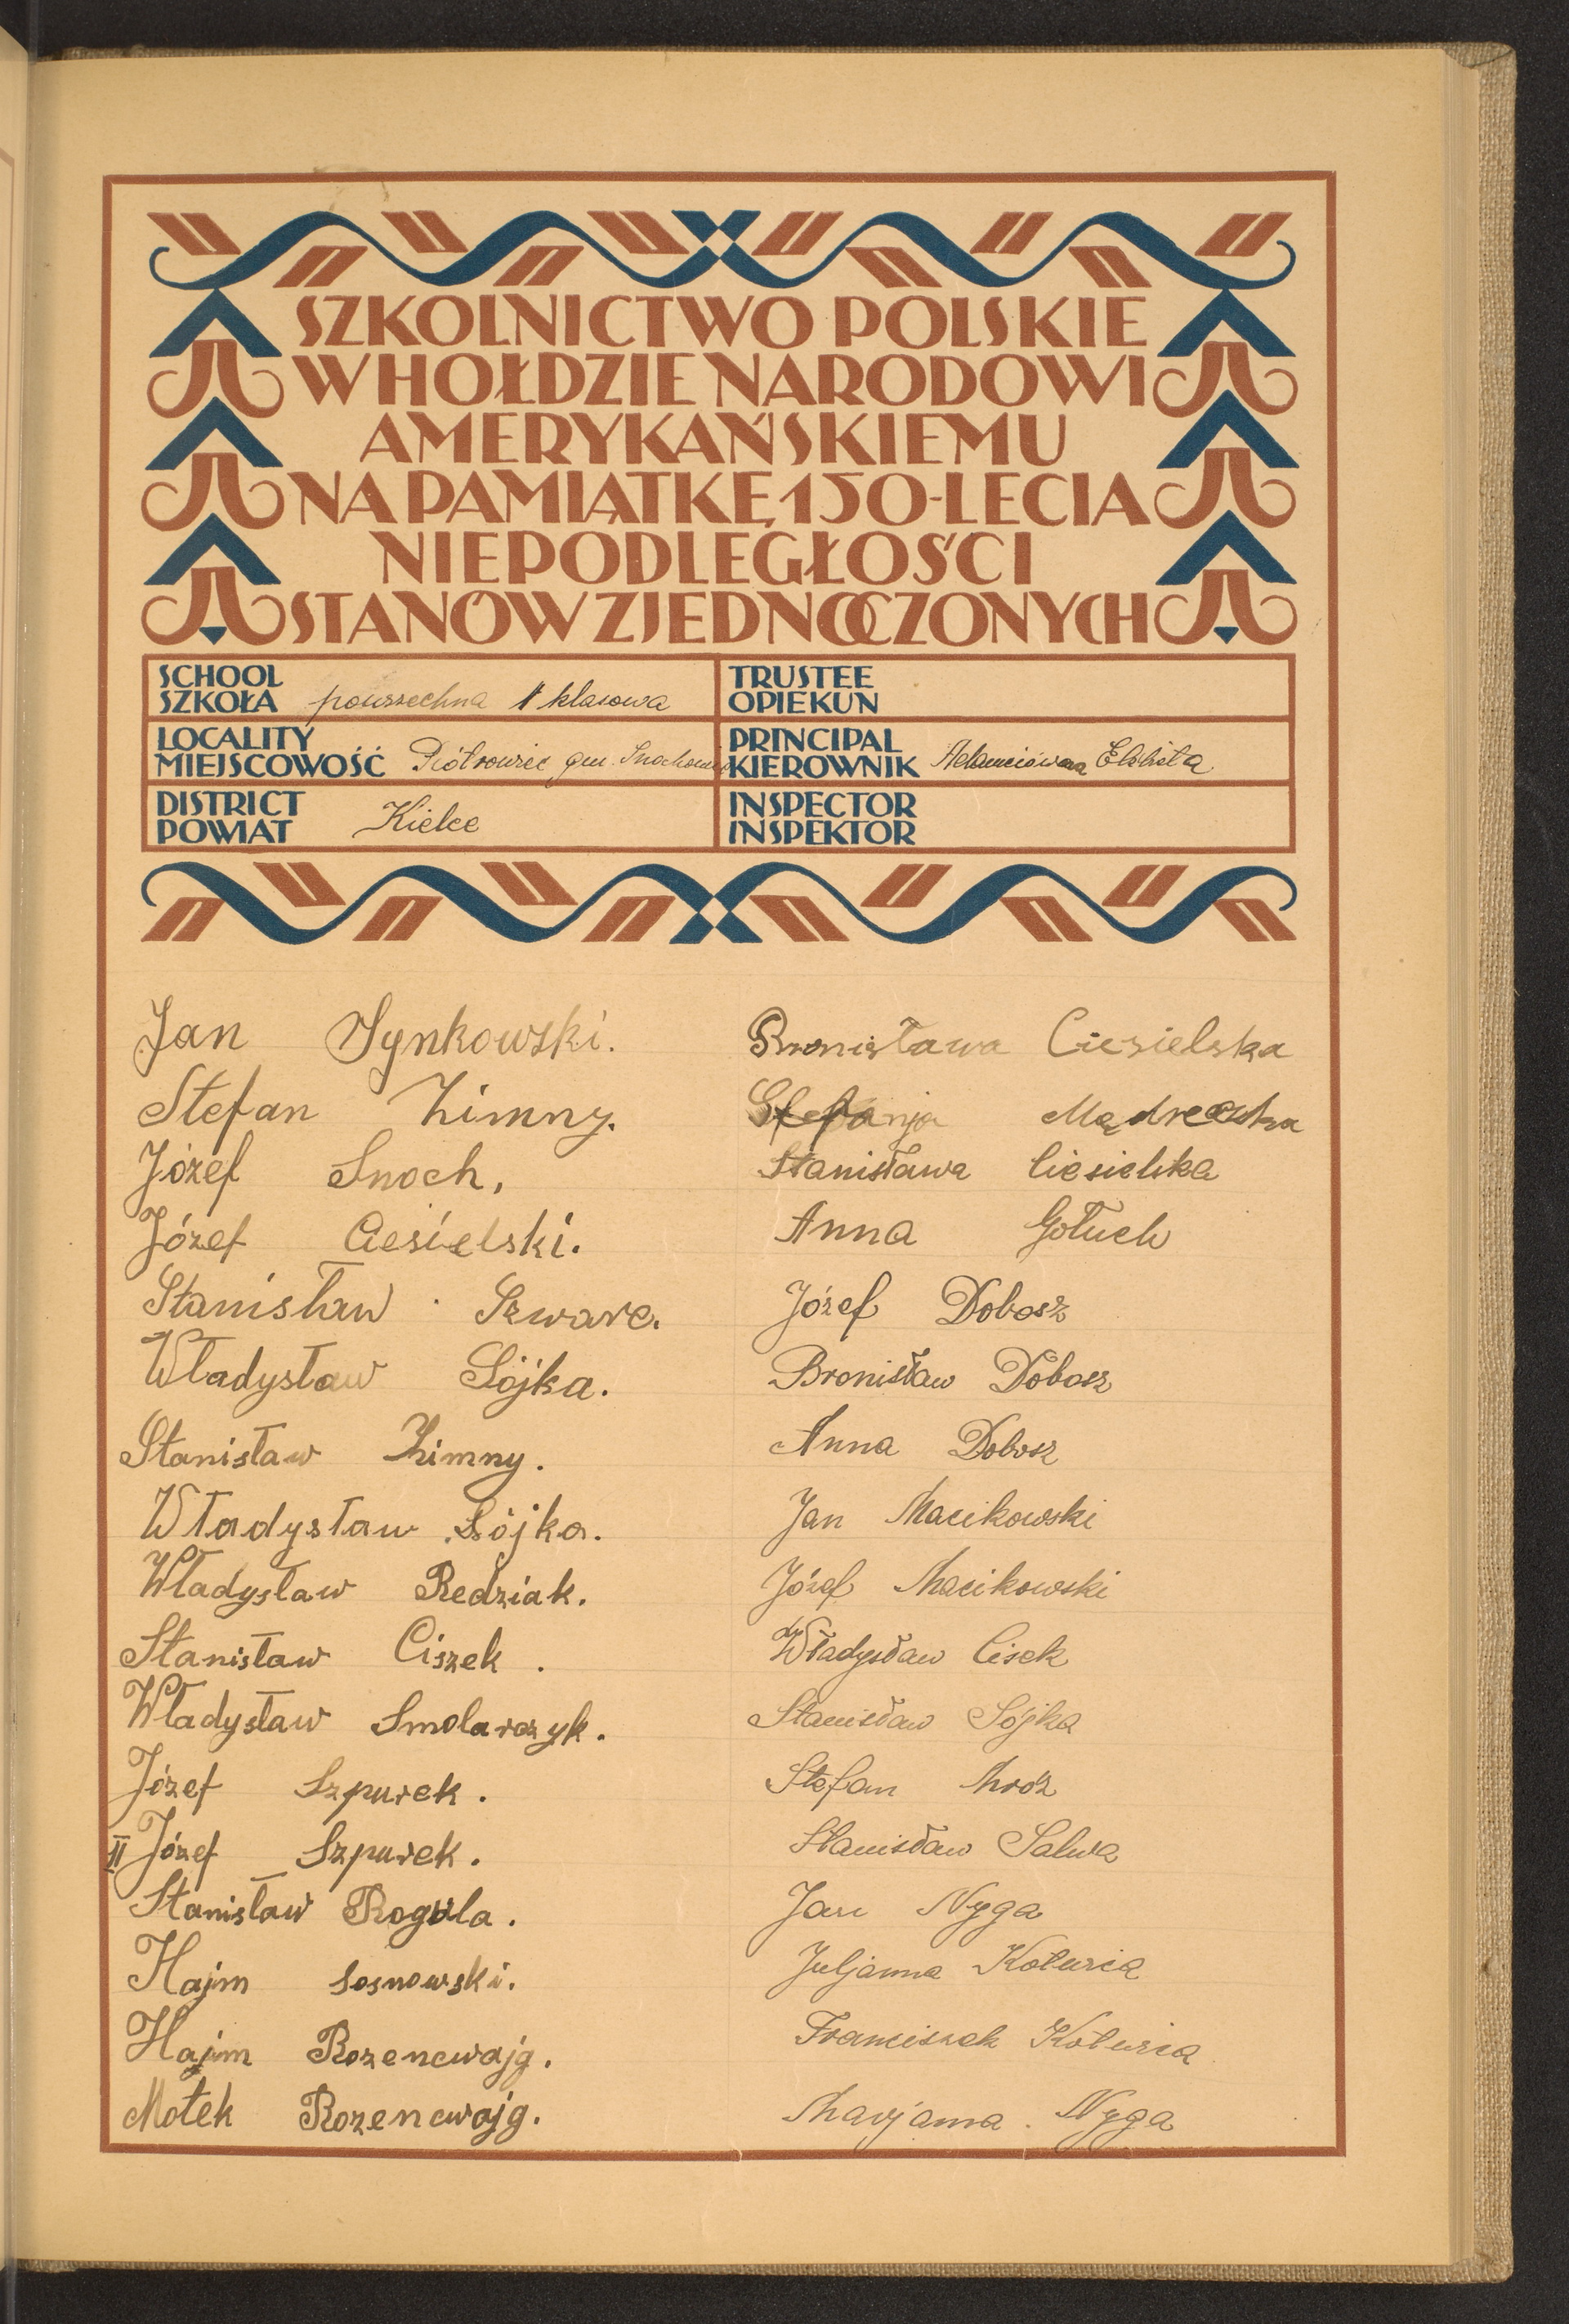 SZKOLNICTWO POLSKIE
W HOŁDZIE NARODOWI
AMERYKAŃSKIEMU
NA PAMIĄTKĘ 150-LECIA
NIEPODLEGŁOŚCI
STANÓW ZJEDNOCZONYCH
SCHOOL
SZKOŁA powszechna 1 klasowa
LOCALITY
MIEJSCOWOŚĆ Piotrowiec gm. Snochowice
DISTRICT
POWIAT Kielce
TRUSTEE
OPIEKUN
PRINCIPAL
KIEROWNIK Elżbieta
INSPECTOR
INSPEKTOR
Jan Synkowski.
Stefan Zimny.
Józef Snoch,
Józef Ciesielski.
Stanisław Szwarc.
Władysław Sójka.
Stanisław Zimny.
Władysław Sójka.
Władysław Redziak.
Stanisław Ciszek.
Władysław Smolarczyk.
Józef Szpurek.
II Józef Szpurek.
Stanisław Rogula.
Hajm Sosnowski.
Hajm Rozencwajg.
Motek Rozencwajg.
Bronisława Ciesielska
Stefanja
Stanisława Ciesielska
Anna Gołuch
Józef Dobosz
Bronisław Dobosz
Anna Dobosz
Jan Macikowski
Józef Macikowski
Władysław Cisek
Stanisław Sójka
Stefan Mróz
Stanisław Salwa
Jan Nyga
Juljanna Koturia
Franciszek Koturia
Marjanna Nyga